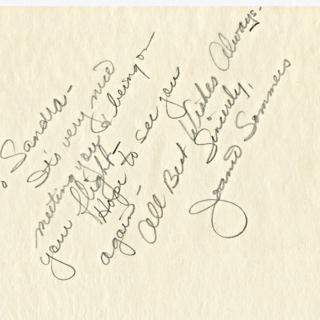 Sandra-
It's very nice
meeting you & being on
your flight-
Hope to see you
again-
All Best Wishes Always-
Sincerely,
Joanie Sommers